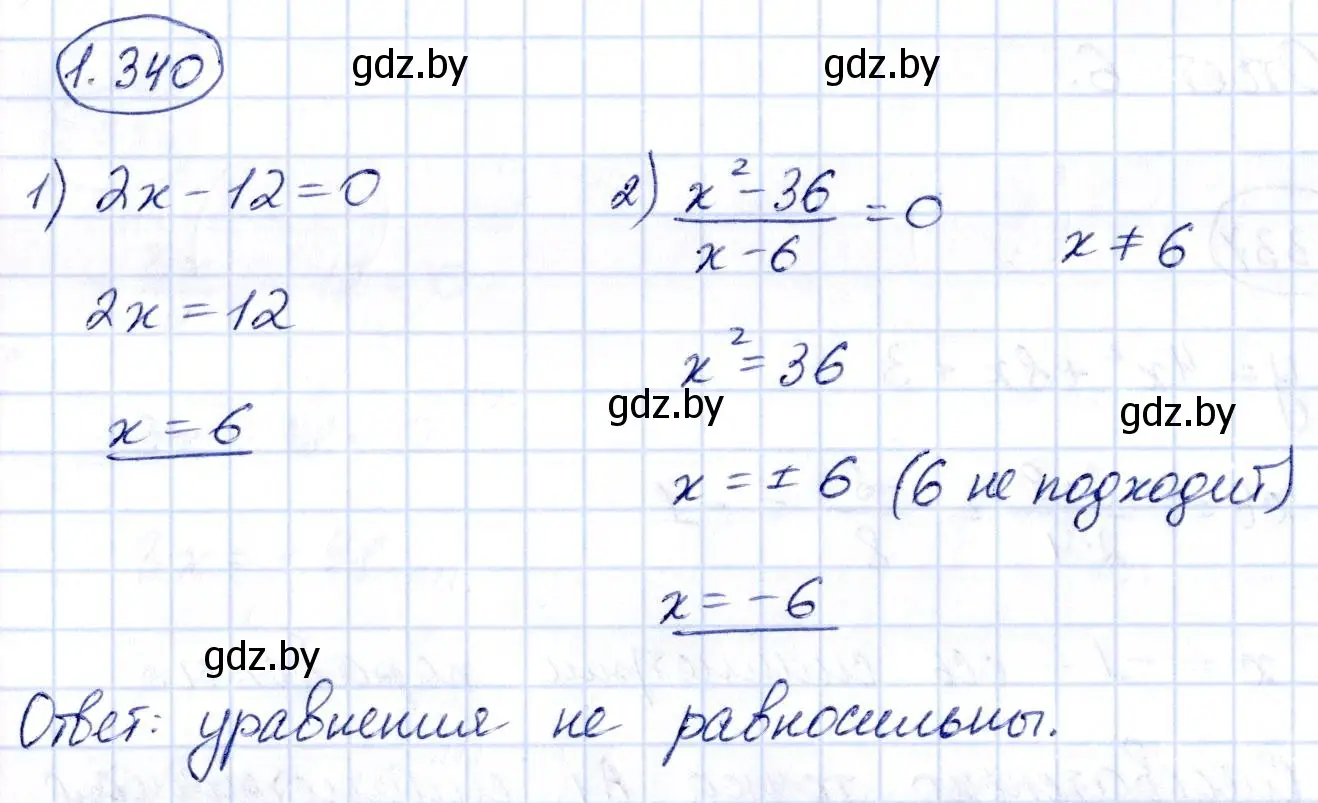 1.340 gdz.by gdz.by
1) 2x - 12 = 0
2x = 12
x = 6
2) x² - 36 / x - 6 = 0 x ≠ 6
x² = 36
gdz.by gdz.by
x = ± 6 (6 не подходит)
x = -6
gdz.by
Ответ: уравнения не равносильны.